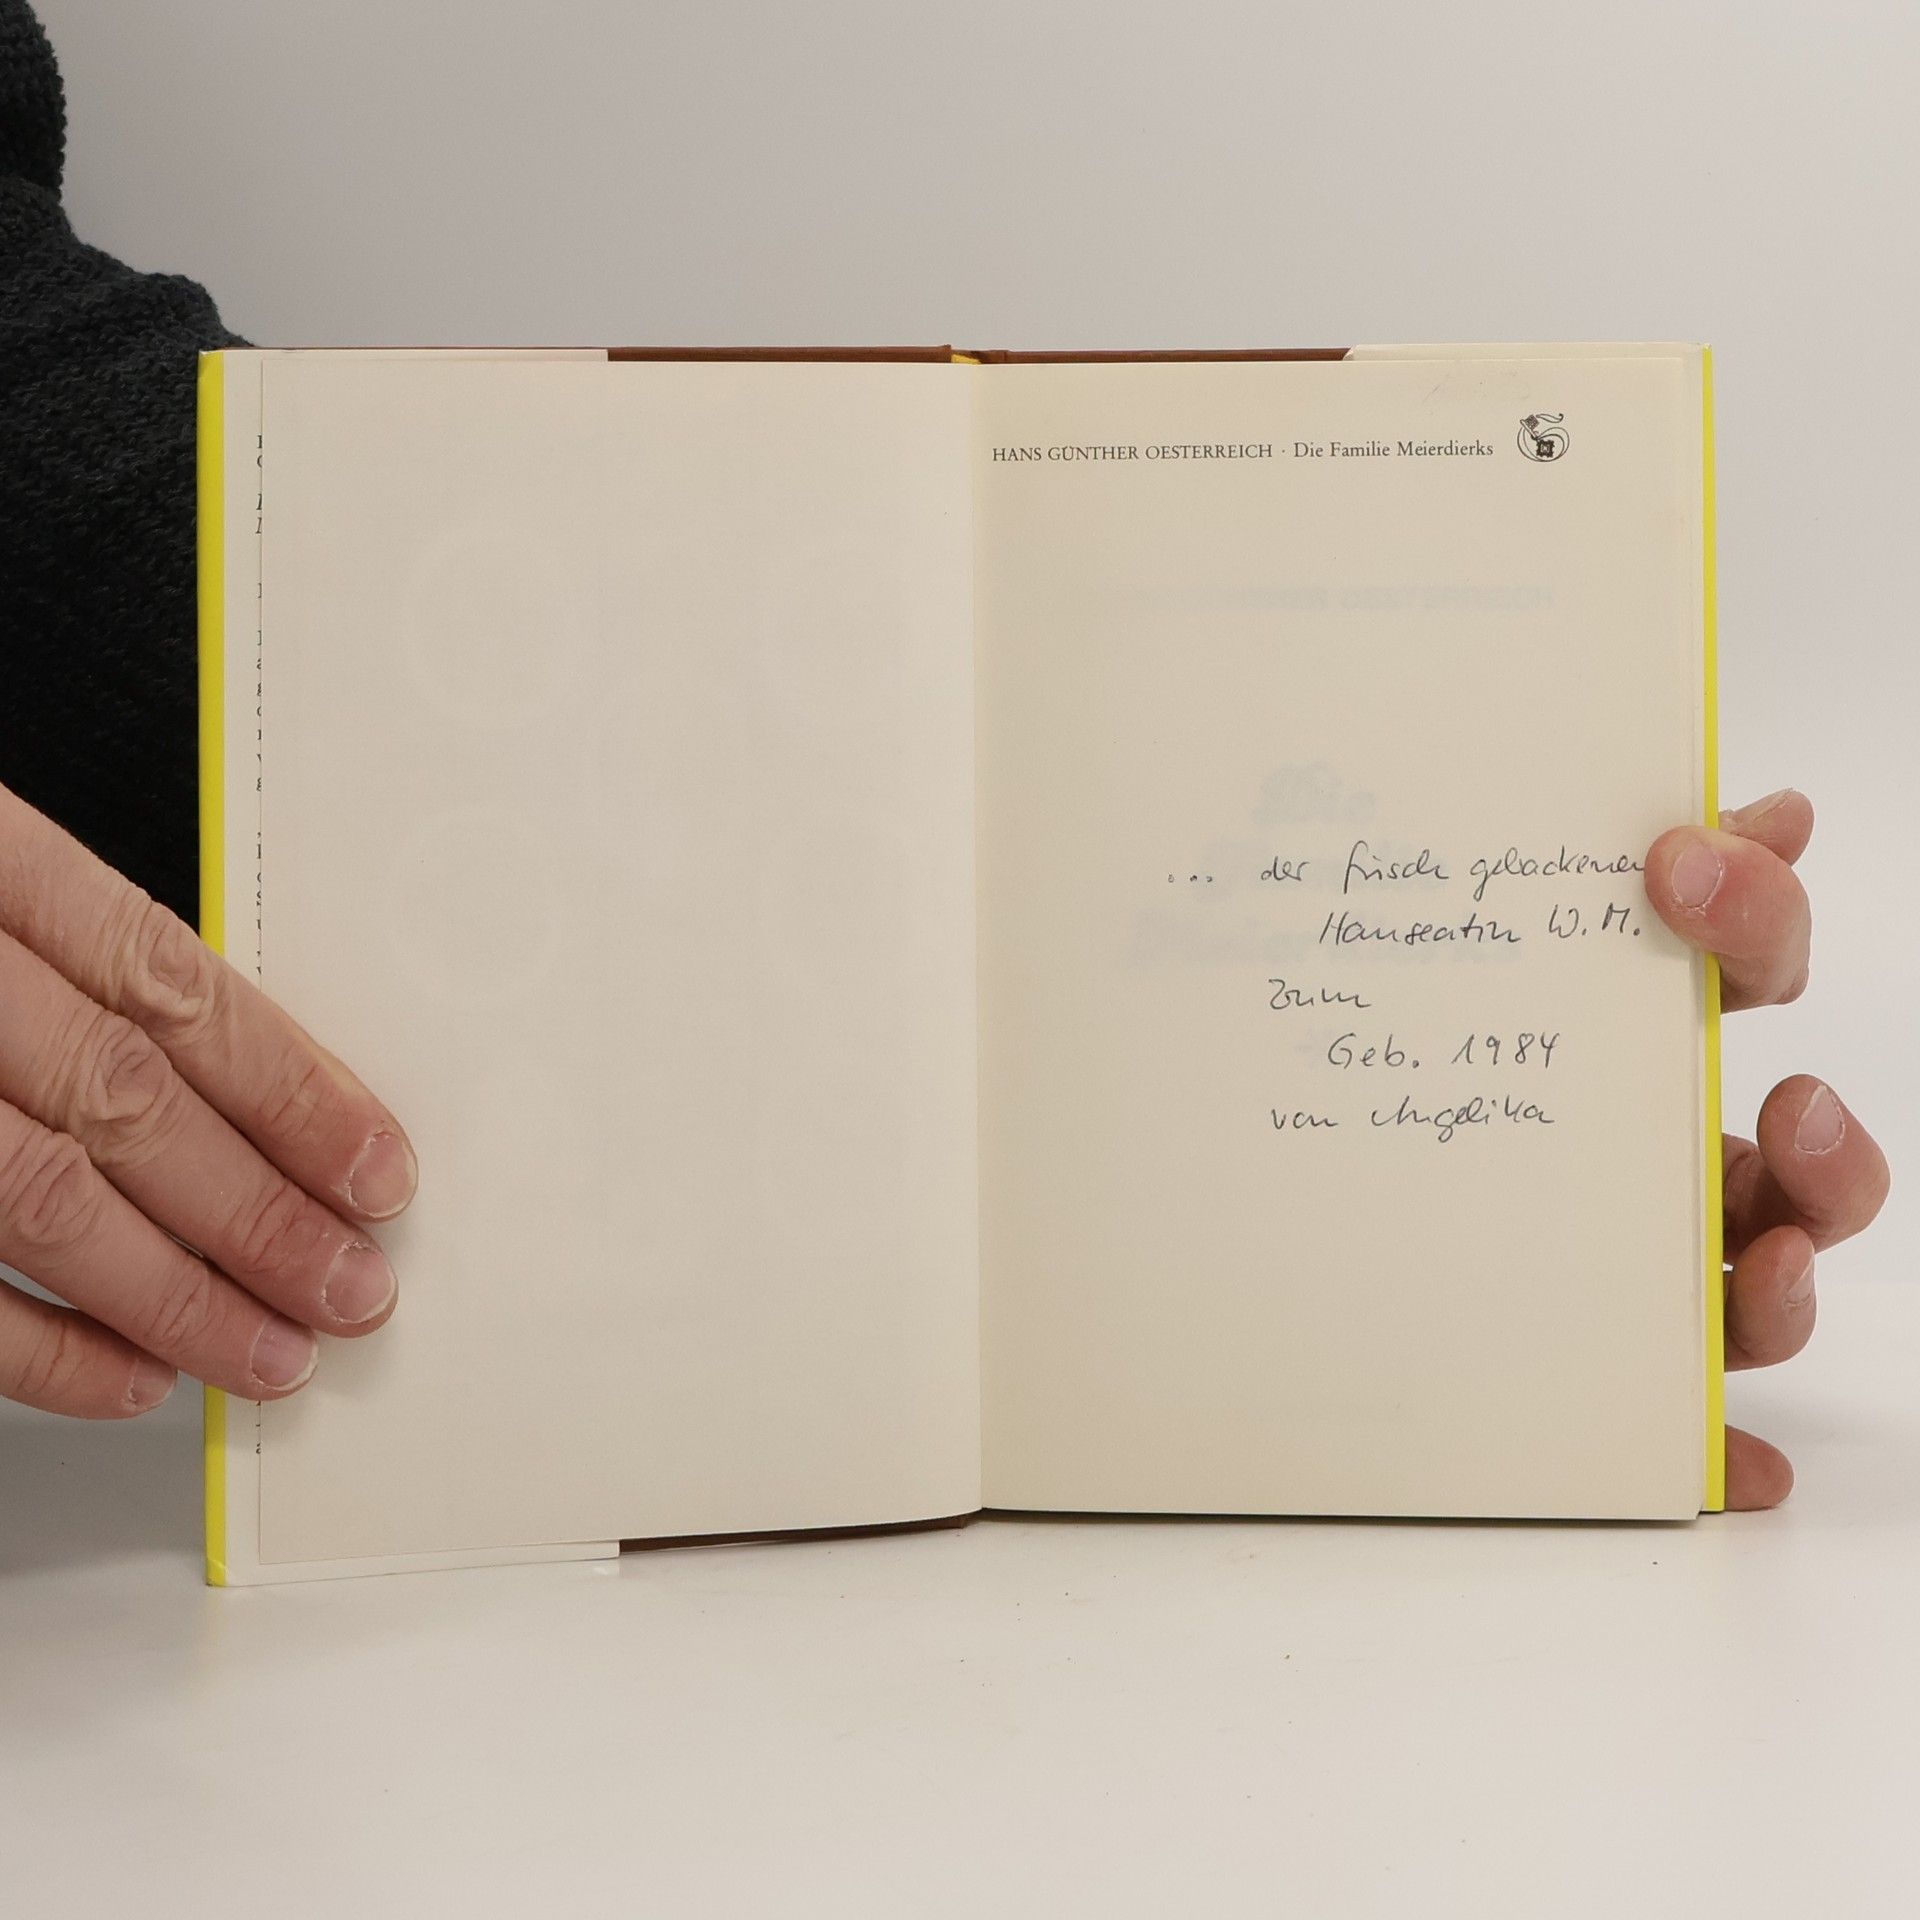 HANS GÜNTHER OESTERREICH · Die Familie Meierdierks
... der frisch gebackenen
Hanseatin W. M.
zum
Geb. 1984
von Angelika